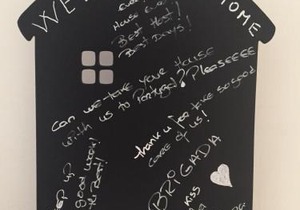 WE HOME
House Ever
Best Host!
Best Days!
Can we take your House
with us to Portugal? Pleaseeee
thank u for take so good
care of us!
good work!
BRIGADA
Kiss